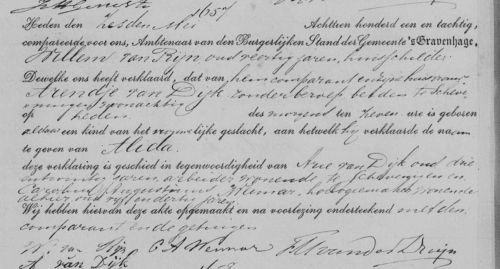 1657
Heden den zesden Mei Achttien honderd een en tachtig,
compareerde voor ons, Ambtenaar van den Burgerlijken Stand der Gemeente 's Gravenhage,
Willem van Rijn oud veertig jaren, huisschilder
Dewelke ons heeft verklaard, dat van hem comparant en zijne huisvrouw
Arendje van Dijk zonder beroep beiden te Scheve-
ningen woonachtig
op heden des morgens ten zeven ure is geboren
aldaar een kind van het vrouwelijke geslacht, aan hetwelk hij verklaarde de naam
te geven van Alida.
deze verklaring is geschied in tegenwoordigheid van Arie van Dijk oud drie
jaren, arbeider wonende te Scheveningen en
Jacobus Augustinus Weimar, horlogemaker wonende
alhier oud jaren
Wij hebben hiervan deze akte opgemaakt en na voorlezing onderteekend met den
comparant en de getuigen
W. van Rijn C A Weimar
A van Dijk